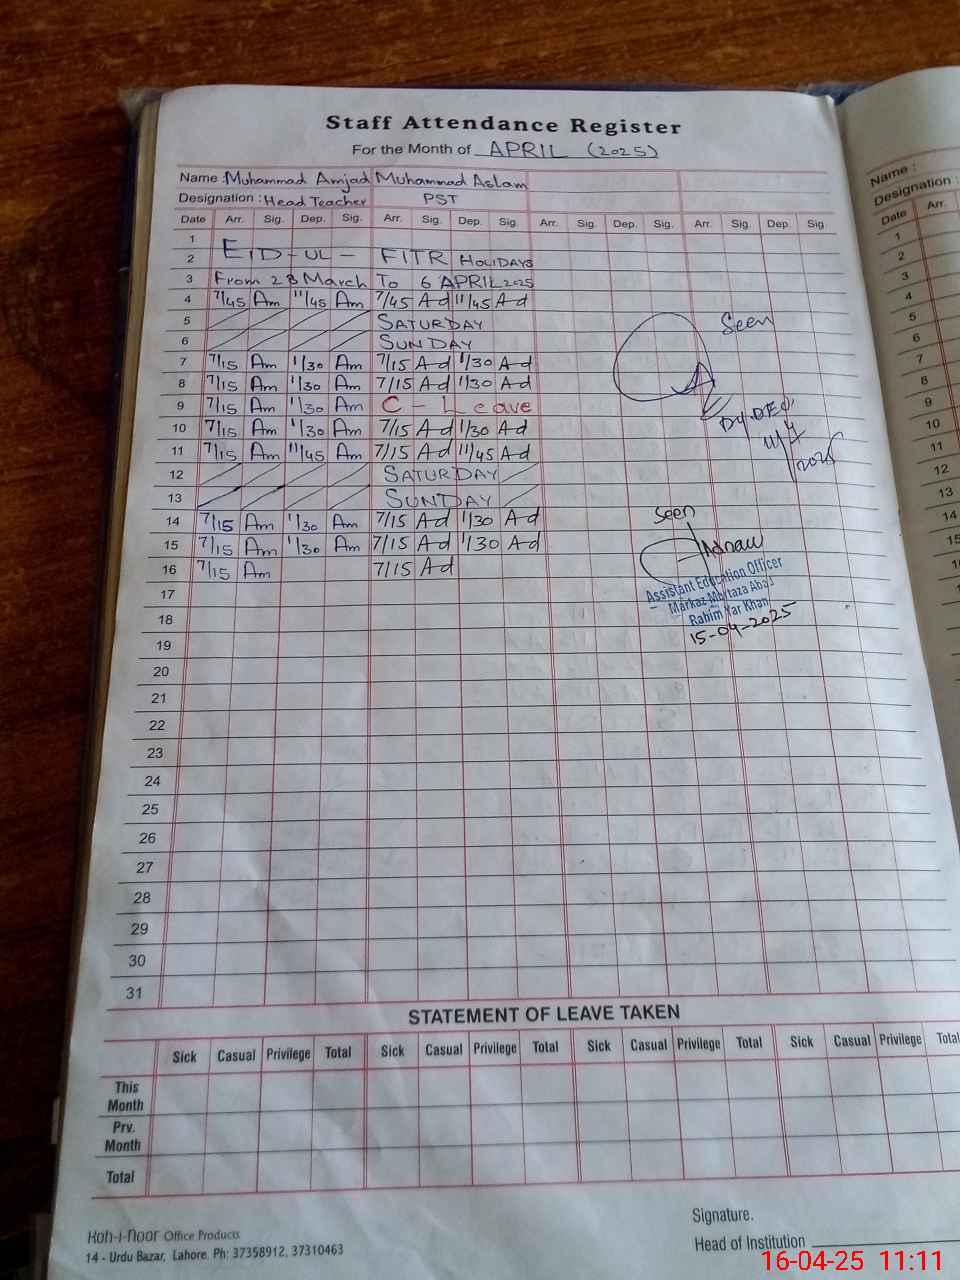 Staff Attendance Register
For the Month of APRIL (2025)
Name : Muhammad Amjad Muhammad Aslam
Designation : Head Teacher PST
Date Arr. Sig. Dep. Sig. Arr. Sig. Dep. Sig. Arr. Sig. Dep. Sig. Arr. Sig. Dep. Sig.
1
2 EID-UL- FITR HOLIDAYS
3 From 28 March To 6 APRIL 2025
4 7/45 Am 11/45 Am 7/45 Ad 11/45 Ad
5 SATURDAY
6 SUNDAY
7 7/15 Am 1/30 Am 7/15 Ad 1/30 Ad
8 7/15 Am 1/30 Am 7/15 Ad 1/30 Ad
9 7/15 Am 1/30 Am C - Leave
10 7/15 Am 1/30 Am 7/15 Ad 1/30 Ad
11 7/15 Am 11/45 Am 7/15 Ad 11/45 Ad
12 SATURDAY
13 SUNDAY
14 7/15 Am 1/30 Am 7/15 Ad 1/30 Ad
15 7/15 Am 1/30 Am 7/15 Ad 1/30 Ad
16 7/15 Am 7/15 Ad
17
18
19
20
21
22
23
24
25
26
27
28
29
30
31
Seen
Dy.DEO.
11/4
2025
Seen
Adnan
Assistant Education Officer
Markaz Murtaza Abad
Rahim Yar Khan
15-04-2025
STATEMENT OF LEAVE TAKEN
Sick Casual Privilege Total Sick Casual Privilege Total Sick Casual Privilege Total Sick Casual Privilege Total
This Month
Prv. Month
Total
Koh-i-Noor Office Products
14 - Urdu Bazar, Lahore. Ph: 37358912, 37310463
Signature.
Head of Institution
Name :
Designation :
Date Arr.
1
2
3
4
5
6
7
8
9
10
11
12
13
14
15
16-04-25 11:11